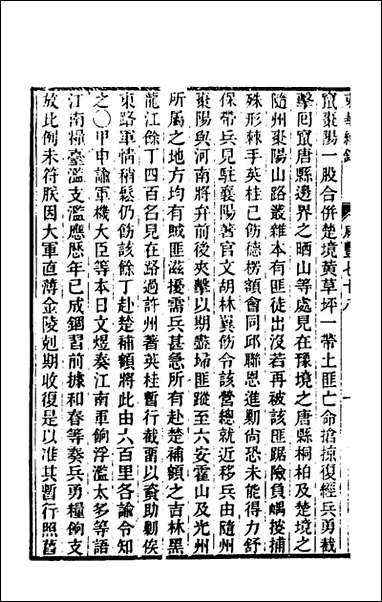 東華續錄　咸豐七十八　一
竄棗陽一股合併楚境黃草坪一帶土匪亡命搶掠復經兵勇截
擊回竄唐縣邊界之晒山等處見在豫境之唐縣桐柏及楚境之
隨州棗陽山路叢雜本有匪徒出沒若再被該匪踞險負嵎搜捕
殊形棘手英桂已飭德楞額會同邱聯恩進剿尙恐未能得力舒
保帶兵見駐襄陽著官文胡林翼飭令該營總就近移兵由隨州
棗陽與河南將弁前後夾擊以期盡埽匪蹤至六安霍山及光州
所屬之地方均有賊匪滋擾需兵甚急所有赴楚補額之吉林黑
龍江餘丁四百名見在路過許州著英桂暫行截留以資助剿俟
東路軍情稍鬆仍飭該餘丁赴楚補額將此由六百里各諭令知
之〇甲申諭軍機大臣等本日文煜奏江南軍餉浮濫太多等語
江南糧臺濫支濫應歷年已成錮習前據和春等奏兵勇糧餉支
放比例未符朕因大軍直薄金陵剋期收復是以准其暫行照舊